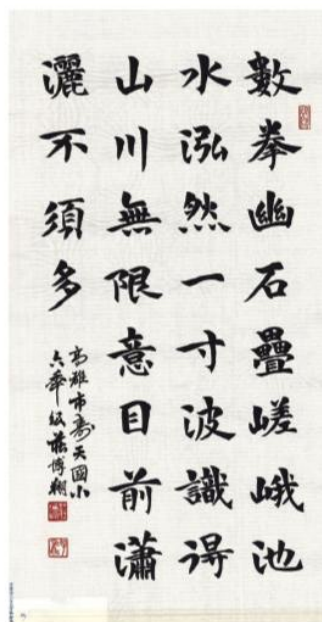 數拳幽石疊嵯峨池
水泓然一寸波識得
山川無限意目前瀟
灑不須多
高雄市壽天國小
六年級莊博翔